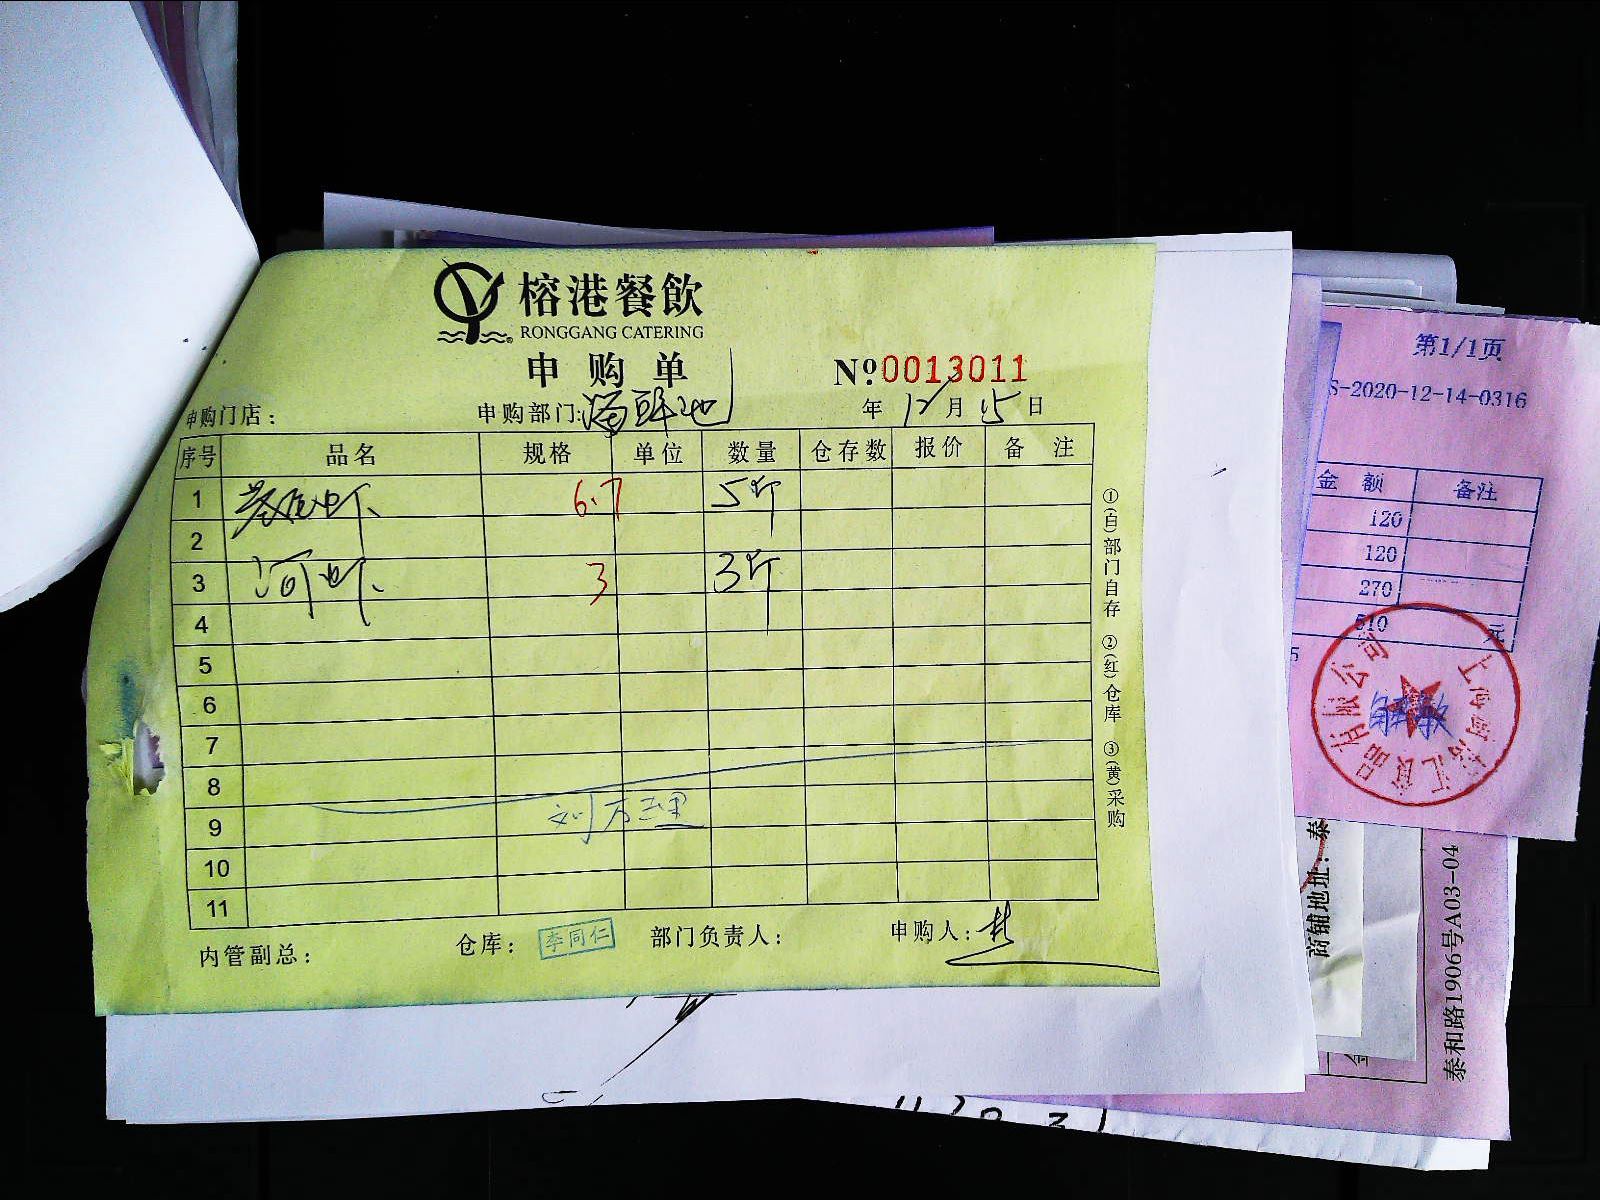 榕港餐飲
RONGGANG CATERING
申购单
№0013011
申购门店：
申购部门：
年 12月 15日
序号 品名 规格 单位 数量 仓存数 报价 备注
1 基围虾 6.7 5斤
2
3 河虾 3 3斤
4
5
6
7
8
9 刘万里
10
11
内管副总：
仓库：李同仁
部门负责人：
申购人：
①(白)部门自存 ②(红)仓库 ③(黄)采购
第1/1页
S-2020-12-14-0316
金额 备注
120
120
270
510 元
5
商铺地址：泰
泰和路1906号A03-04